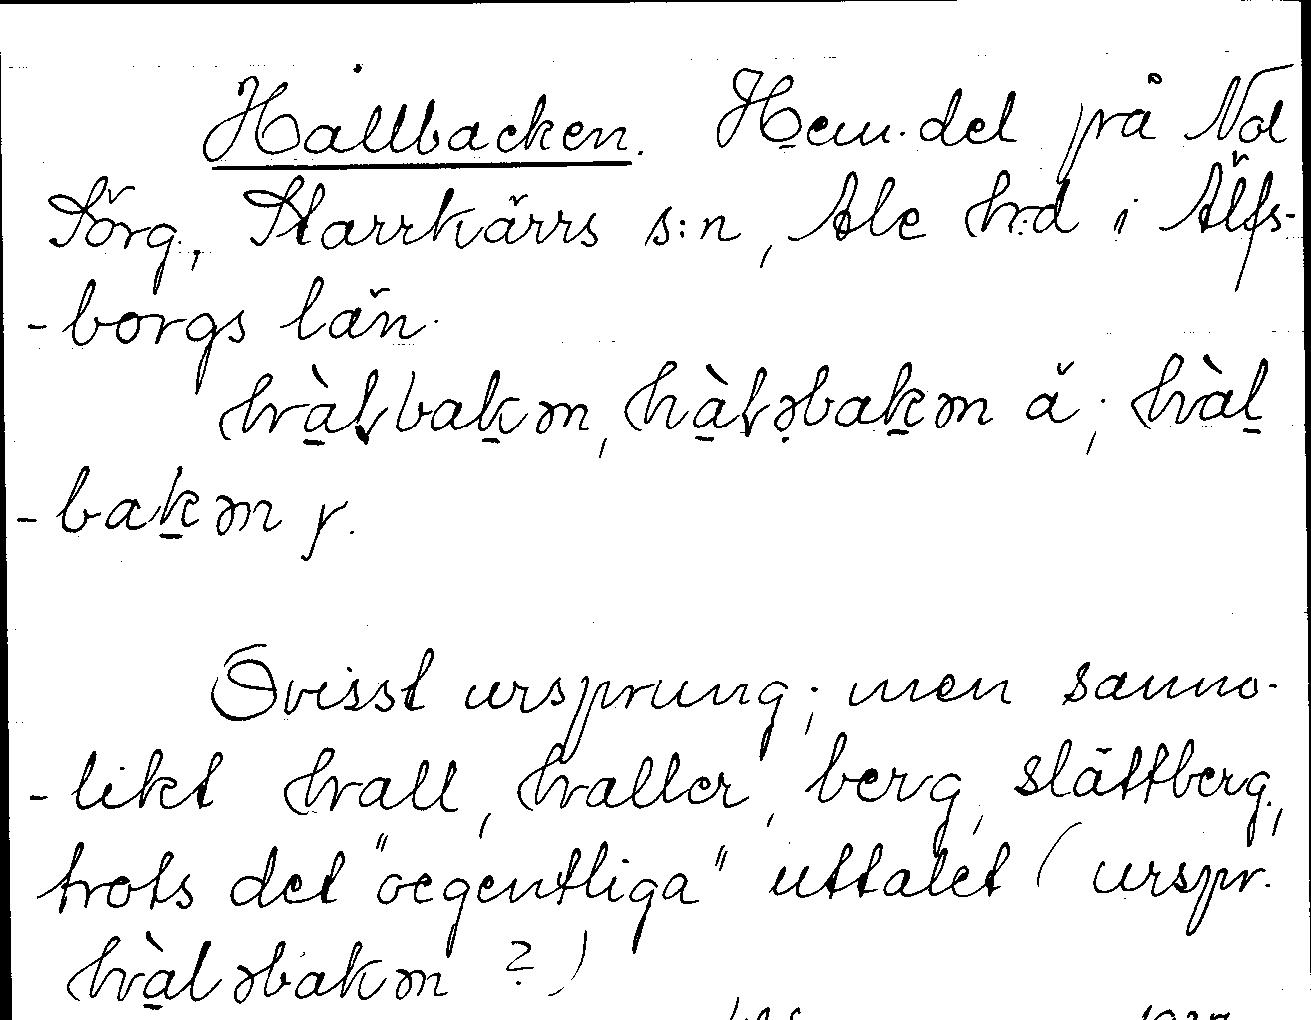 Hallbacken. Hem.del på Nol
Törg., Starrkärrs s:n, Ale hd i Älfs-
-borgs län.
hàłbakən, hàłəbakən ä; hàl
-bakən y.
Ovisst ursprung; men sanno-
-likt hall, haller, berg, slättberg,
trots det "oegentliga" uttalet (urspr.
hàləbakən ?)